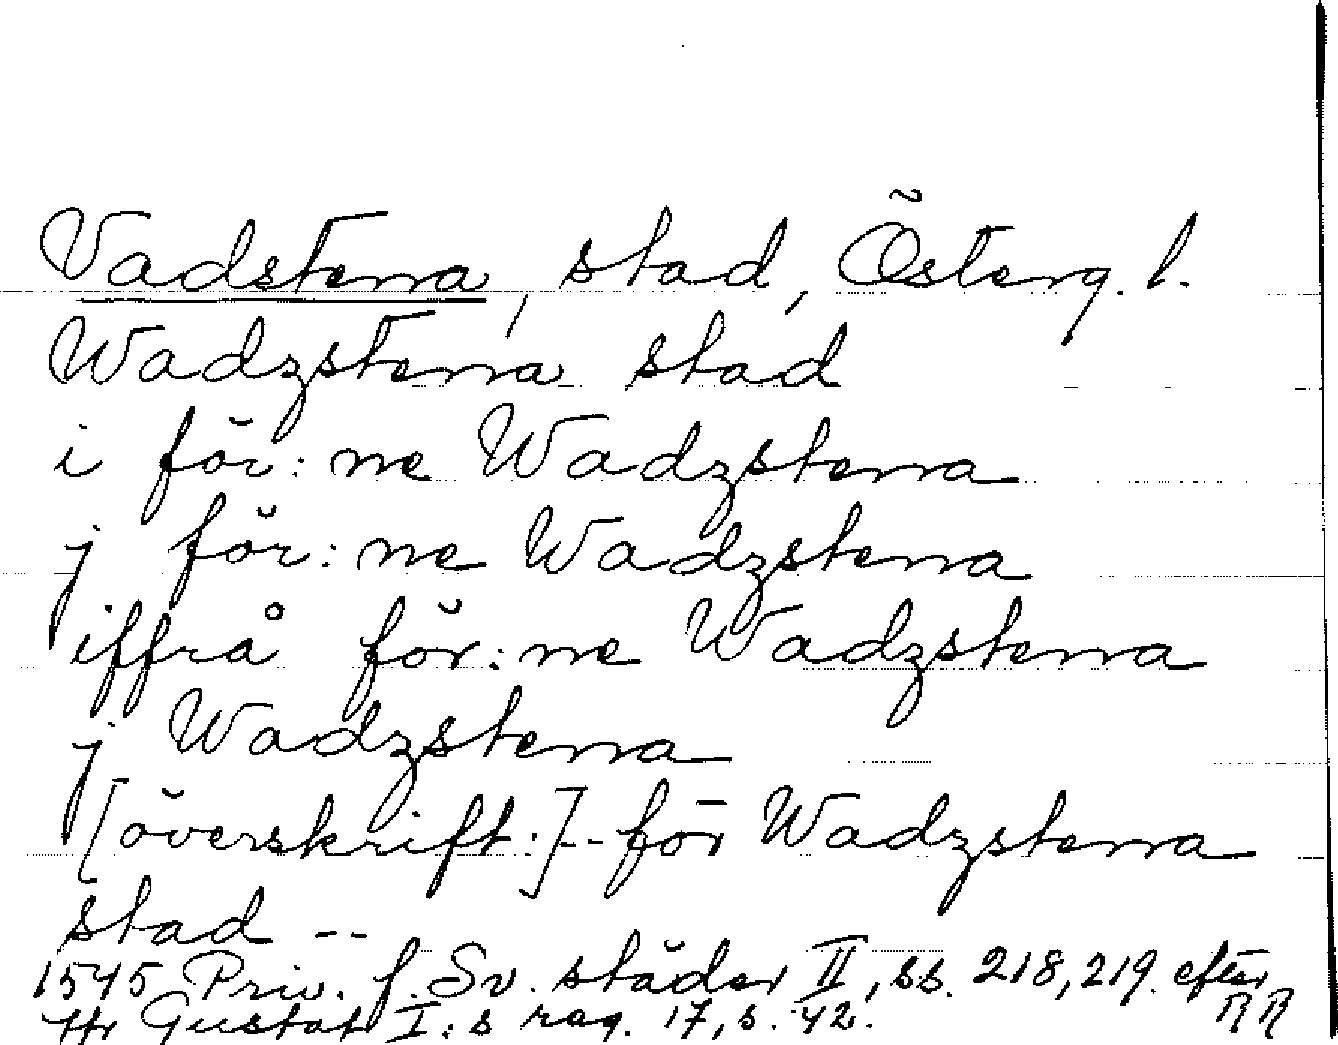 Vadstena, stad, Österg. l.
Wadzstena stad
i för:ne Wadzstena
j för:ne Wadzstena
iffrå för:ne Wadzstena
j Wadzstena
[överskrift:] -- för Wadzstena
stad --
1545 Priv. f. Sv. städer II, ss. 218, 219. efter
Gustaf I:s reg. 17, s. 42. RR